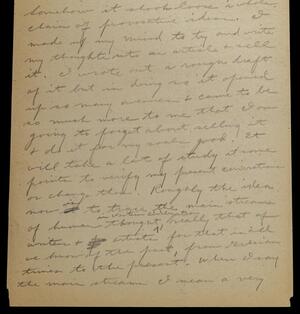 Somehow it shook loose a whole
chain of provocative ideas. I
made up my mind to try and write
my thoughts into an article & sell
it. I wrote out a rough draft
of it but in doing so it opened
up so many avenues & came to be
so much more to me that I am
going to forget about selling it
& do it for my soul's good. It
will take a lot of study at some
points to verify my present convictions
or change them. Roughly the idea
now is to trace the main streams
of human thought, really that of
writers & artists for that is all
we know of the past, from Grecian
times to the present. When I say
the main streams I mean a very